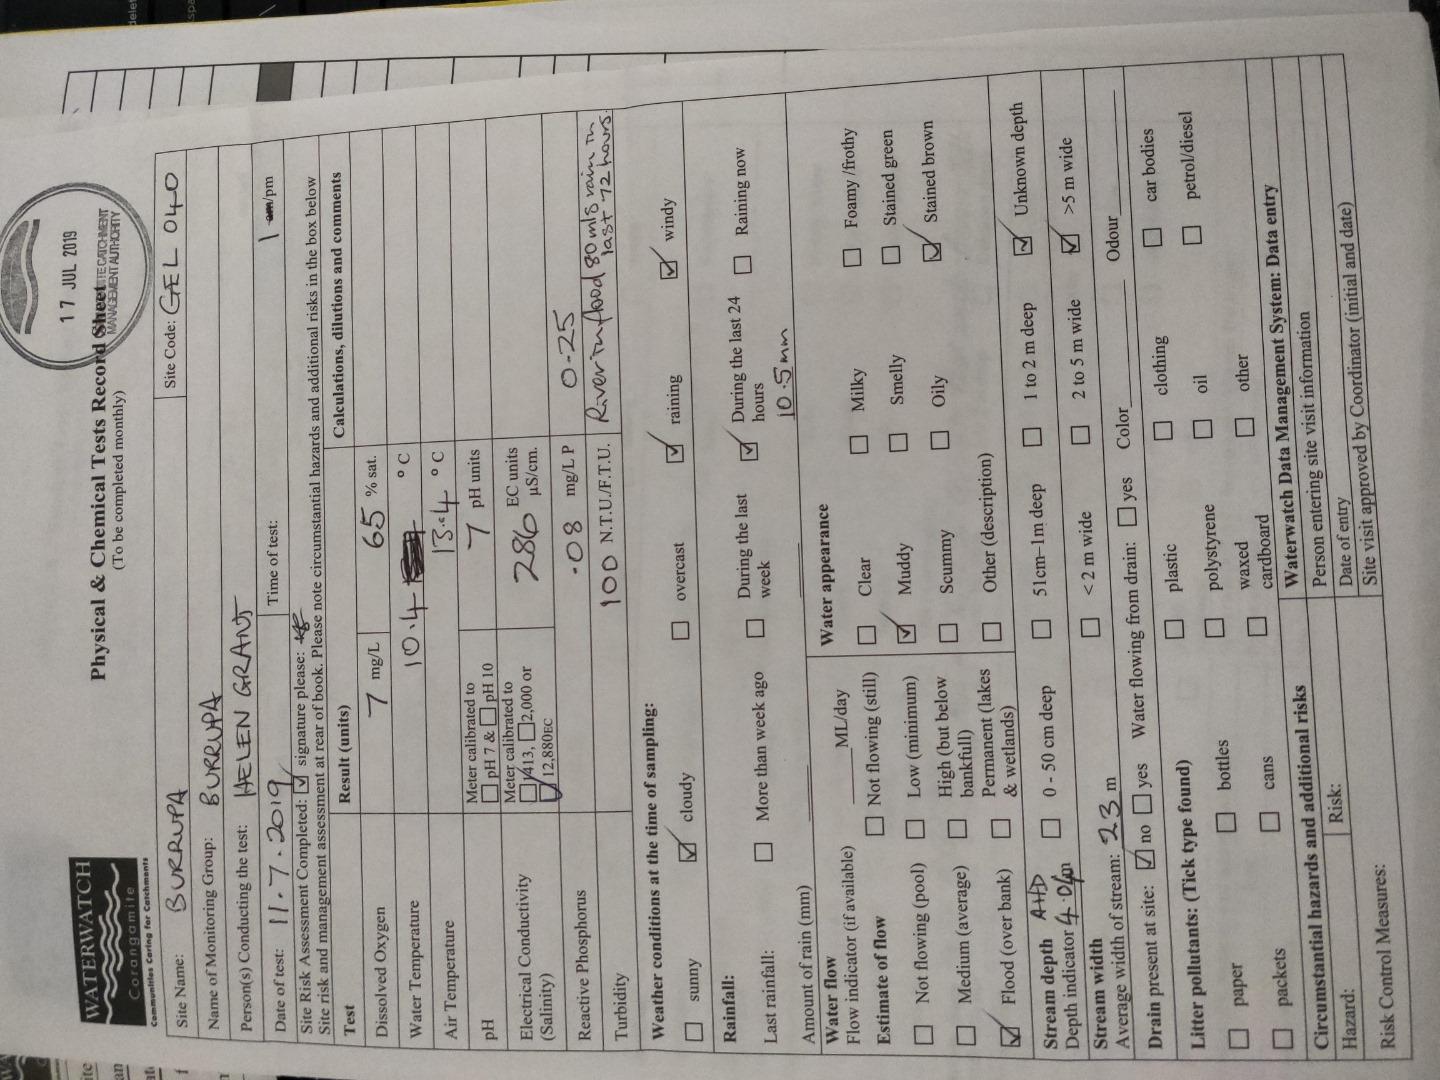 WATERWATCH
Corangamite
Communities Caring for Catchments
17 JUL 2019
MANAGEMENT AUTHORITY
Physical & Chemical Tests Record Sheet
(To be completed monthly)
Site Name: BURRUPA Site Code: GEL 040
Name of Monitoring Group: BURRUPA
Person(s) Conducting the test: HELEN GRANT
Date of test: 11.7.2019 Time of test: 1 am/pm
Site Risk Assessment Completed: ☑ signature please:
Site risk and management assessment at rear of book. Please note circumstantial hazards and additional risks in the box below
Test Result (units) Calculations, dilutions and comments
Dissolved Oxygen 7 mg/L 65 % sat.
Water Temperature 10.4 °C
Air Temperature 13.4 °C
pH Meter calibrated to ☐ pH 7 & ☐ pH 10 7 pH units
Electrical Conductivity (Salinity) Meter calibrated to ☐ 1413, ☐ 2,000 or ☑ 12,880EC 286 EC units µS/cm.
Reactive Phosphorus .08 mg/L P 0.25
Turbidity 100 N.T.U./F.T.U. River in flood 80 mls rain in last 72 hours.
Weather conditions at the time of sampling:
☐ sunny ☑ cloudy ☐ overcast ☑ raining ☑ windy
Rainfall:
Last rainfall: ☐ More than week ago ☐ During the last week ☑ During the last 24 hours ☐ Raining now
Amount of rain (mm) 10.5mm
Water flow
Flow indicator (if available) ML/day
Estimate of flow
☐ Not flowing (pool) ☐ Not flowing (still)
☐ Medium (average) ☐ Low (minimum)
☑ Flood (over bank) ☐ High (but below bankfull)
☐ Permanent (lakes & wetlands)
Water appearance
☐ Clear ☐ Milky ☐ Foamy /frothy
☑ Muddy ☐ Smelly ☐ Stained green
☐ Scummy ☐ Oily ☑ Stained brown
☐ Other (description)
Stream depth AHD
Depth indicator 4.04m ☐ 0 - 50 cm deep ☐ 51cm–1m deep ☐ 1 to 2 m deep ☑ Unknown depth
Stream width
Average width of stream: 23 m ☐ < 2 m wide ☐ 2 to 5 m wide ☑ >5 m wide
Drain present at site: ☑ no ☐ yes Water flowing from drain: ☐ yes Color Odour
Litter pollutants: (Tick type found) ☐ plastic ☐ clothing ☐ car bodies
☐ paper ☐ bottles ☐ polystyrene ☐ oil ☐ petrol/diesel
☐ packets ☐ cans ☐ waxed cardboard ☐ other
Circumstantial hazards and additional risks
Hazard: Risk:
Risk Control Measures:
Waterwatch Data Management System: Data entry
Person entering site visit information
Date of entry
Site visit approved by Coordinator (initial and date)